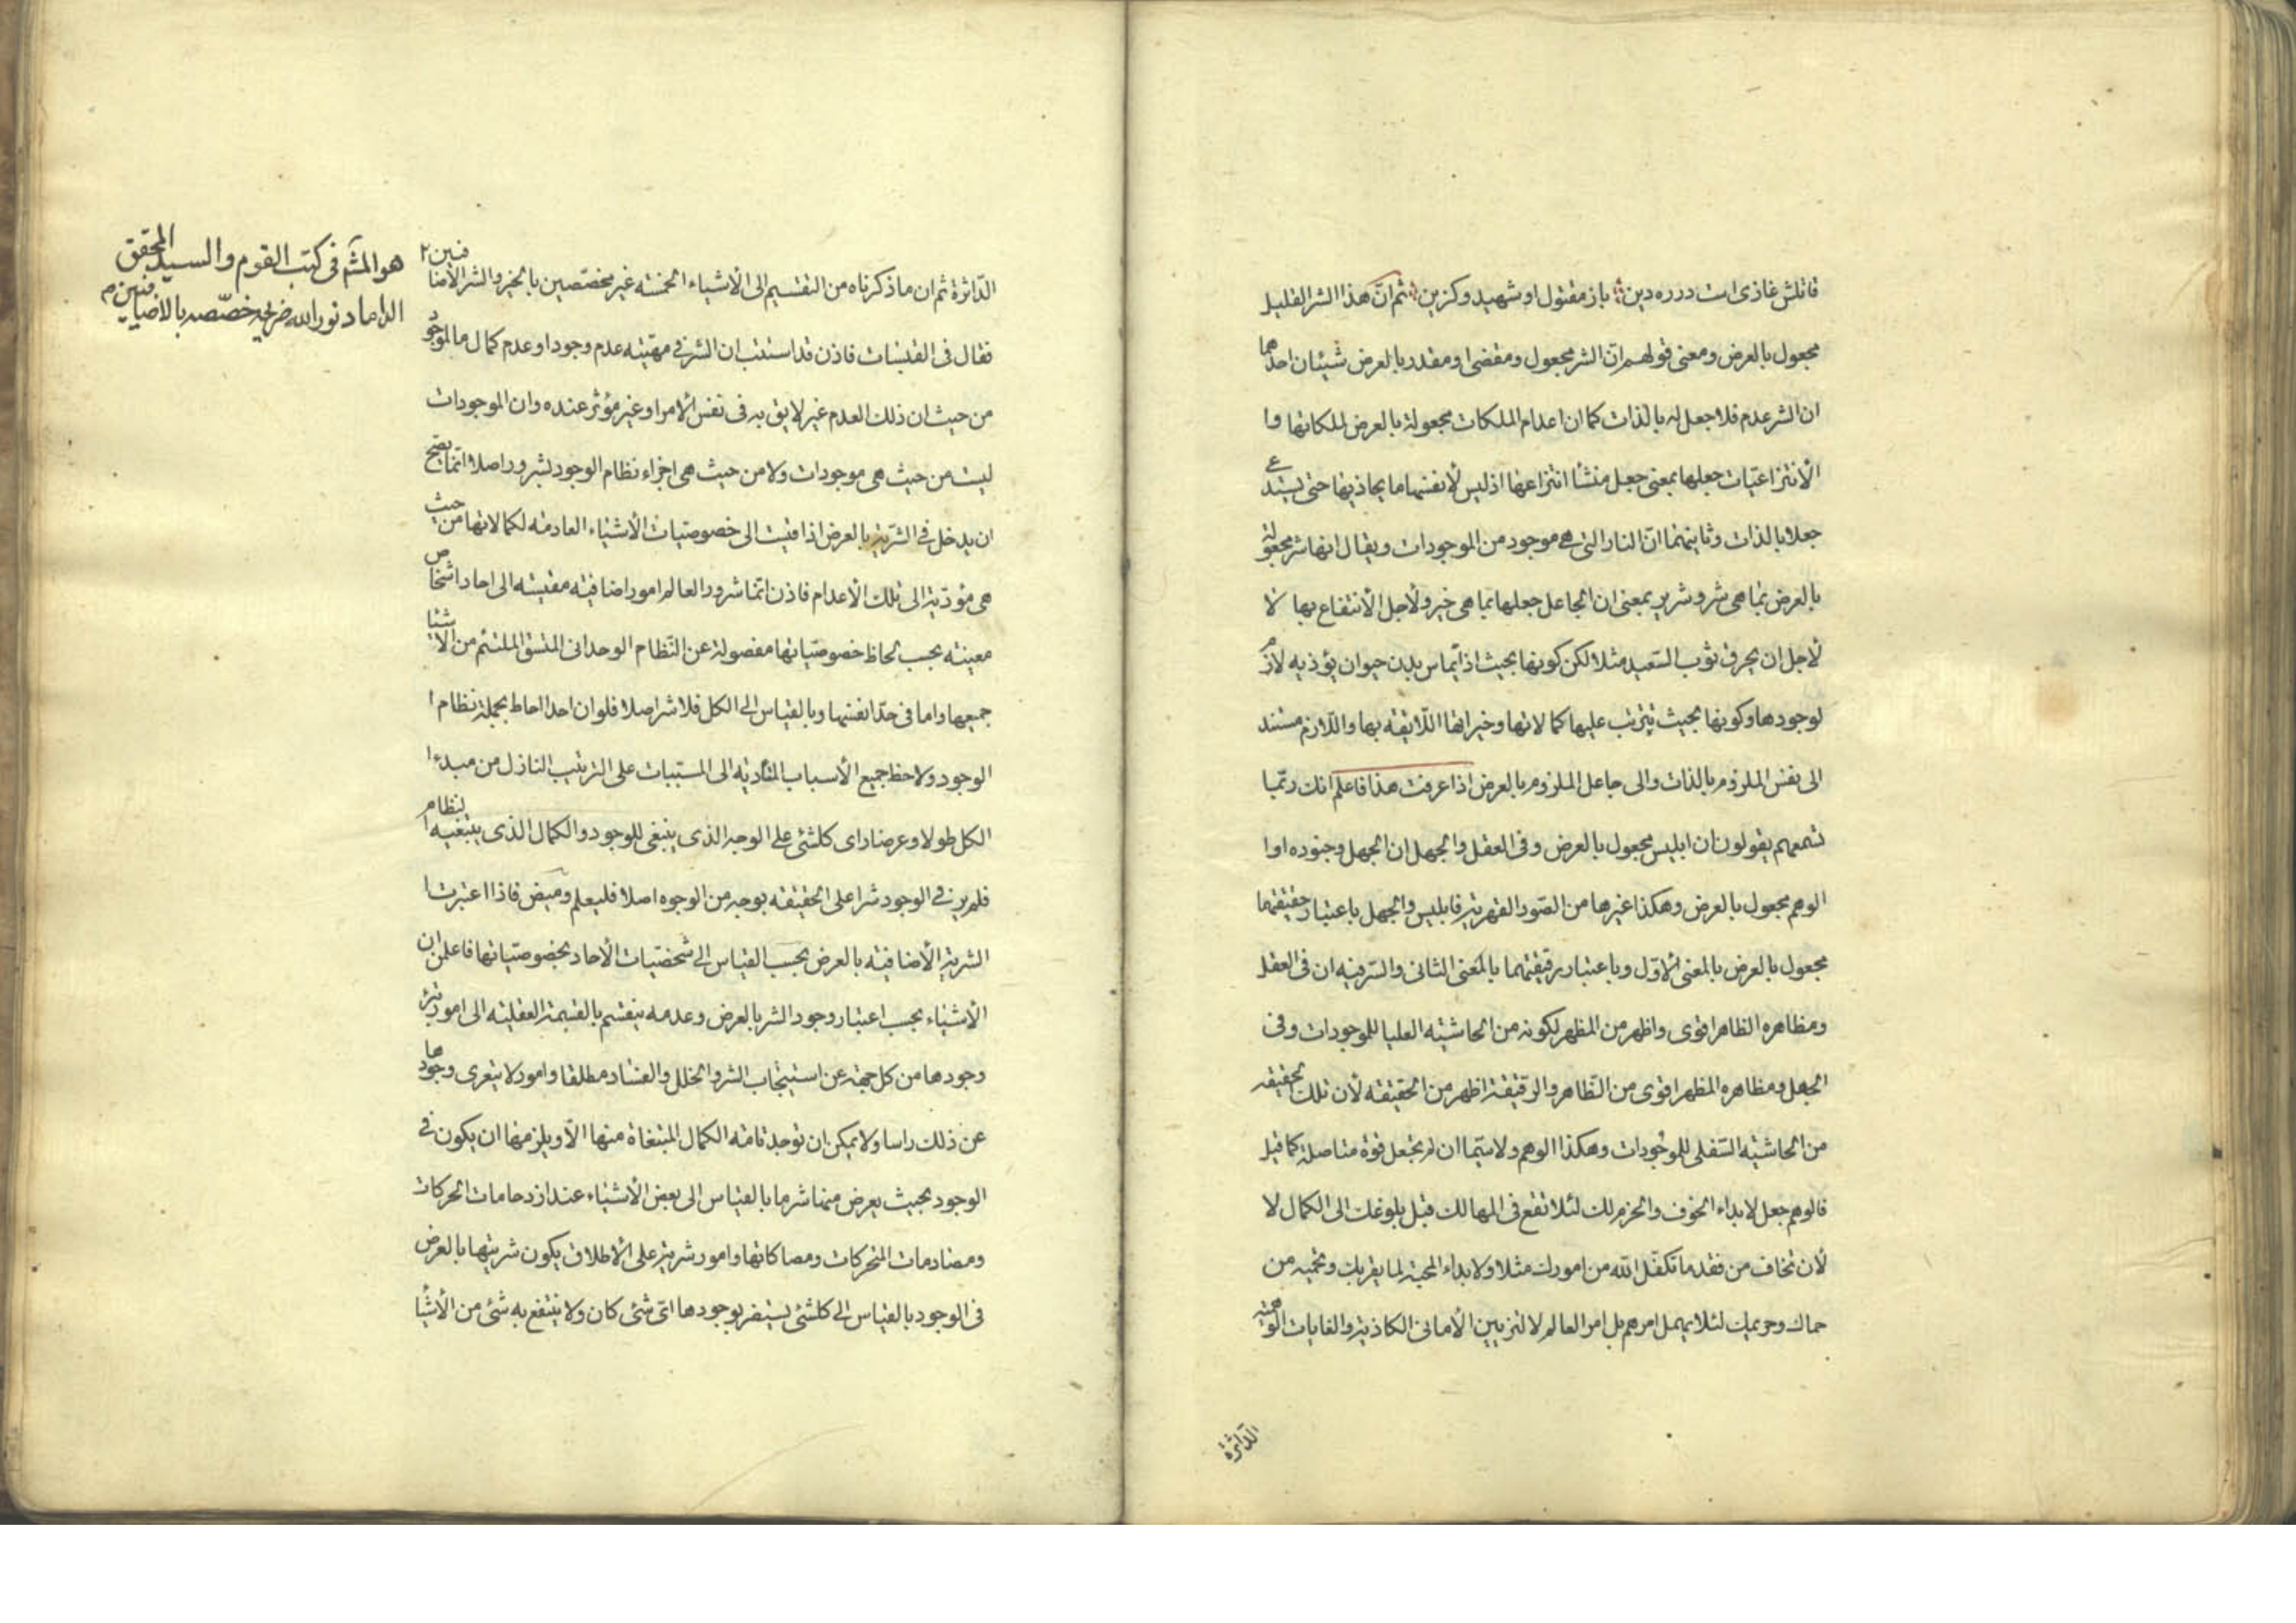 قاتلش غازی است در ره دین باز مقتول او شهید و گزین ثم انّ هذا الشر القلیل
مجعول بالعرض ومعنی قولهم انّ الشر مجعول ومقضی او مقدر بالعرض شیئان احدهما
ان الشر عدم فلا جعل له بالذات کما ان اعدام الملکات مجعولة بالعرض لملکاتها وا
لأنتزاعیات جعلها بمعنی جعل منشأ انتزاعها اذ لیس لأنفسها ما یحاذیها حتی یستدع
جعلا بالذات وثانیهما انّ النار التی هی موجود من الموجودات ویقال انها شر مجعولة
بالعرض بما هی شر وشریر بمعنی ان الجاعل جعلها بما هی خیر ولأجل الأنتفاع بها لا
لأجل ان یحرق ثوب السّعید مثلا لکن کونها بحیث اذا تماس بدن حیوان یؤذیه لازم
لوجودها وکونها بحیث یترتب علیها کمالاتها وخیراتها اللّایقه بها واللّازم مستند
الی نفس الملزوم بالذات والی جاعل الملزوم بالعرض اذا عرفت هذا فاعلم انک ربّما
تسمعهم یقولون ان ابلیس مجعول بالعرض وفی العقل والجهل ان الجهل وجنوده اوا
الوهم مجعول بالعرض وهکذا غیرها من الصّور القهریة فابلیس والجهل باعتبار حقیقتهما
مجعول بالعرض بالمعنی الأوّل وباعتبار رقیقتهما بالمعنی الثانی والسّر فیه ان فی العقل
ومظاهره الظاهر اقوی واظهر من المظهر لکونه من الحاشیته العلیا للموجودات وفی
الجهل ومظاهره المظهر اقوی من الظّاهر والرقیقة اظهر من الحقیقته لأن تلک الحقیقه
من الحاشیته السّفلی للموجودات وهکذا الوهم ولا سیّما ان لم تجعل قوة متاصلة کما قیل
فالوهم جعل لابداء الخوف والحزم لک لئلا تقع فی المهالک قبل بلوغک الی الکمال لا
لأن تخاف من فقد ما تکفّل الله من امورک مثلا ولابداء المحبة لما یقربک وتحمیه من
حماک وحریمک لئلا یهمل امرهم بل امر العالم لا لتزیین الأمانی الکاذبة والغایات الوهمیه
الدّاثرة
الدّاثرة ثم ان ما ذکرناه من التقسیم الی الأشیاء الخمسته غیر مختصّین بالخیر والشر الأضا
فیین ٢
هو المشهّ فی کتب القوم والسید المحقق
الداماد نور الله ضریحه خصّصه بالأضا فیین م
فقال فی القبسات فاذن قد استتب ان الشر فی مهیّته عدم وجود او عدم کمال ما لموجود
من حیث ان ذلک العدم غیر لایق به فی نفس الأمر او غیر مؤثر عنده وان الموجودات
لیست من حیث هی موجودات ولا من حیث هی اجزاء نظام الوجود بشرور اصلا انّما یصح
ان یدخل فی الشّریّة بالعرض اذا قیست الی خصوصیّات الأشیاء العادمته لکمالاتها من حیث
هی مؤدّیة الی تلک الأعدام فاذن انّما شرور العالم امور اضافیّته مقیسته الی احاد اشخاص
معینته بحسب لحاظ خصوصیّاتها مفصولة عن النّظام الوحدانی المتسق الملتئم من الأشیا
جمیعها واما فی حدّ انفسها وبالقیاس الی الکل فلا شر اصلا فلو ان احدا احاط بجملة نظام ا
الوجود ولاحظ جمیع الأسباب المتأدّیة الی المسببات علی الترتیب النازل من مبدء ا
الکل طولا وعرضا رای کلشئ علی الوجه الذی ینبغی للوجود والکمال الذی یبتغیه النظام
فلم یر فی الوجود شرا علی الحقیقته بوجه من الوجوه اصلا فلیعلم ومیض فاذا اعتبرت ا
الشریة الأضافیّته بالعرض بحسب القیاس الی شخصیّات الأحاد بخصوصیّاتها فاعلمن ان
الأشیاء بحسب اعتبار وجود الشر بالعرض وعدمه ینقسم بالقسمة العقلیّته الی امور تبرئ
وجودها من کل جهة عن استیجاب الشر والخلل والفساد مطلقا وامور لا یتعری وجودها
عن ذلک راسا ولا یمکن ان توجد تامّته الکمال المبتغاة منها الّا ویلزمها ان یکون فی
الوجود بحیث یعرض منها شر ما بالقیاس الی بعض الأشیاء عند ازدحامات الحرکات
ومصادمات المتحرکات ومصاکاتها وامور شریة علی الأطلاق یکون شریتها بالعرض
فی الوجود بالقیاس الی کلشئ یستضر بوجودها ائ شئ کان ولا ینتفع به شئ من الأشیا